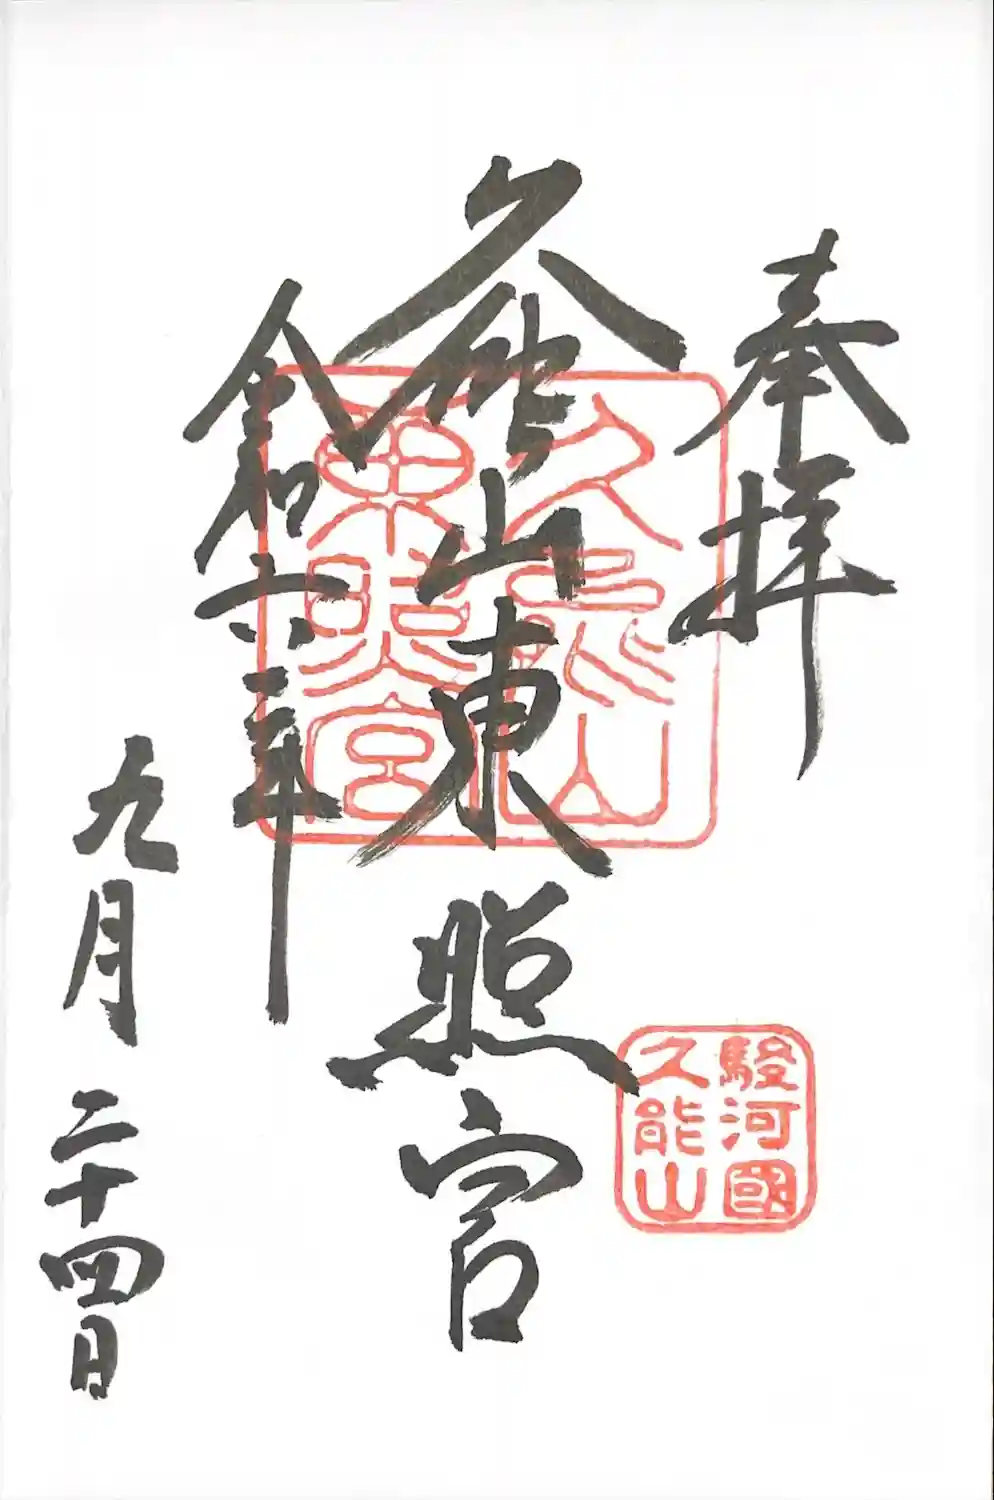 奉拝
駿河國
久能山
久能山
東照宮
久能山東照宮
令和六年
九月二十四日